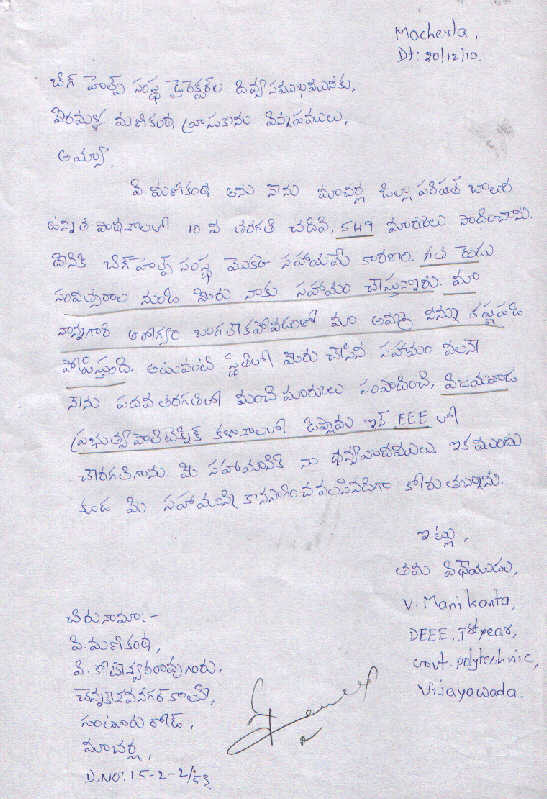 Macherla,
Dt: 20/12/10.
బిగ్ హెల్ప్ సంస్థ డైరెక్టర్‌ల దివ్యసముఖమునకు,
మణికంఠ వ్రాసుకొను విన్నపములు,
అయ్యా,
వి. మణికంఠ అను నేను మాచర్ల జిల్లా పరిషత్ బాలుర
ఉన్నత పాఠశాలలో 10 వ తరగతి చదివి, 549 మార్కులు సాధించాను.
దీనికి బిగ్ హెల్ప్ సంస్థ యొక్క సహాయమే కారణం. గత రెండు
సంవత్సరాల నుండి మీరు నాకు సహాయం చేస్తున్నారు. మా
నాన్నగారి ఆరోగ్యం బాగలేకపోవడంతో మా అమ్మే నన్ను కష్టపడి
పోషిస్తుంది. అటువంటి స్థితిలో మీరు చేసిన సహాయం వలన
నేను పదవ తరగతిలో మంచి మార్కులు సంపాదించి, విజయవాడ
ప్రభుత్వ పాలిటెక్నిక్ కళాశాలలో డిప్లొమా ఇన్ EEE లో
చేరగలిగాను మీ సహాయానికి నా ధన్యవాదములు ఇక ముందు
కూడ మీ సహాయాన్ని కొనసాగించ వలసినదిగా కోరుతున్నాను.
ఇట్లు,
తమ విధేయుడు,
V. Manikanta,
DEEE, Ist year,
Govt. polytechnic,
Vijayawada.
చిరునామా:-
వి. మణికంఠ,
వి. కోటేశ్వరరావుగారు,
చెన్నకేశవనగర్ కాలనీ,
రోడ్,
మాచర్ల,
D.NO: 15-2-2/